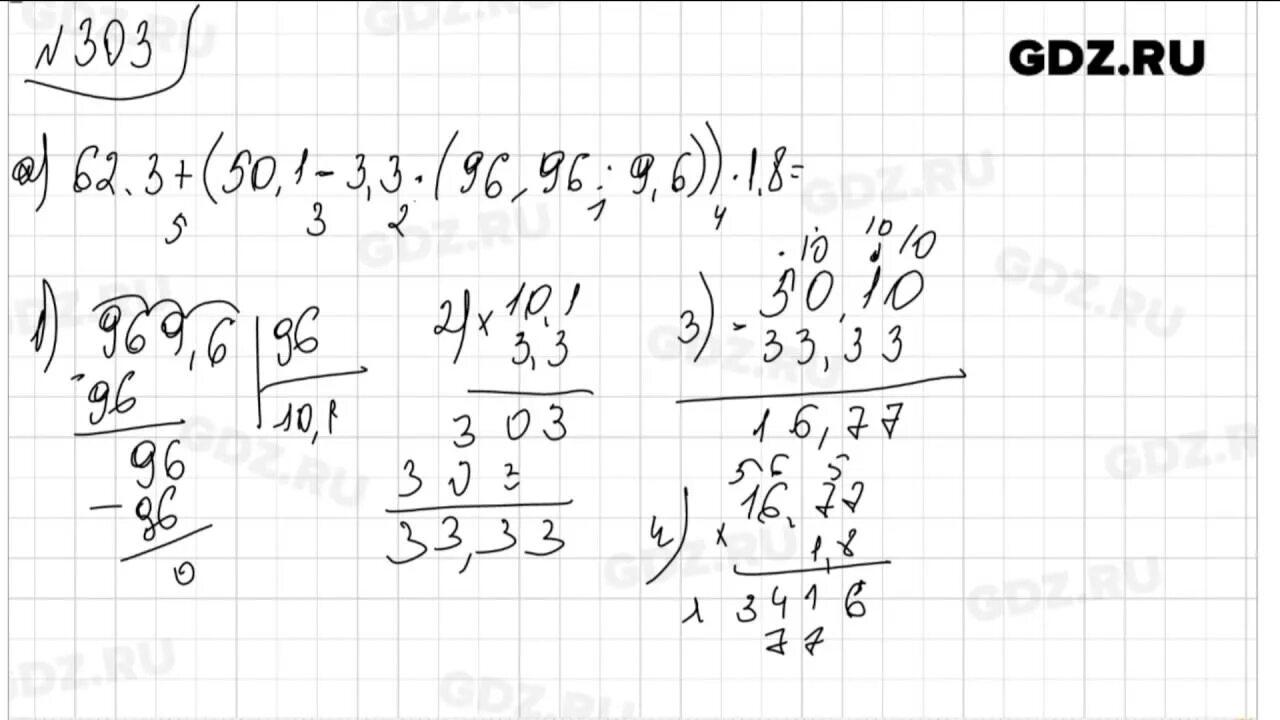 №303
GDZ.RU
а) 62.3+(50,1-3,3·(96,96:9,6))·1,8=
5 3 2 1 4
1) 969,6 | 96
-96 10,1
96
- 96
0
2) × 10,1
3,3
303
303
33,33
3) 10 10 10
- 50,10
33,33
16,77
4) 5 6 5
× 16,77
1,8
1 3416
77